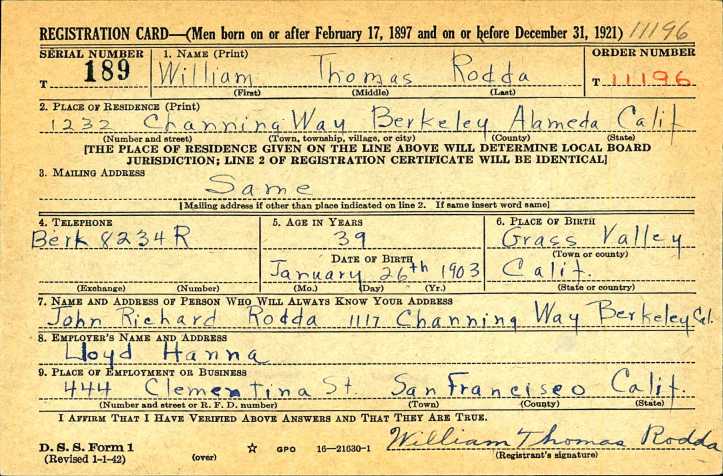 REGISTRATION CARD—(Men born on or after February 17, 1897 and on or before December 31, 1921) 11196
SERIAL NUMBER 1. NAME (Print) ORDER NUMBER
T 189 William Thomas Rodda T 11196
(First) (Middle) (Last)
2. PLACE OF RESIDENCE (Print)
1232 Channing Way Berkeley Alameda Calif
(Number and street) (Town, township, village, or city) (County) (State)
[THE PLACE OF RESIDENCE GIVEN ON THE LINE ABOVE WILL DETERMINE LOCAL BOARD
JURISDICTION; LINE 2 OF REGISTRATION CERTIFICATE WILL BE IDENTICAL]
3. MAILING ADDRESS
Same
[Mailing address if other than place indicated on line 2. If same insert word same]
4. TELEPHONE 5. AGE IN YEARS 6. PLACE OF BIRTH
Berk 8234R 39 Grass Valley
DATE OF BIRTH (Town or county)
January 26th 1903 Calif.
(Exchange) (Number) (Mo.) (Day) (Yr.) (State or country)
7. NAME AND ADDRESS OF PERSON WHO WILL ALWAYS KNOW YOUR ADDRESS
John Richard Rodda 1117 Channing Way Berkeley Cal.
8. EMPLOYER'S NAME AND ADDRESS
Lloyd Hanna
9. PLACE OF EMPLOYMENT OR BUSINESS
444 Clementina St. San Francisco Calif.
(Number and street or R. F. D. number) (Town) (County) (State)
I AFFIRM THAT I HAVE VERIFIED ABOVE ANSWERS AND THAT THEY ARE TRUE.
D. S. S. Form 1 GPO 16—21630-1 William Thomas Rodda
(Revised 1-1-42) (over) (Registrant's signature)